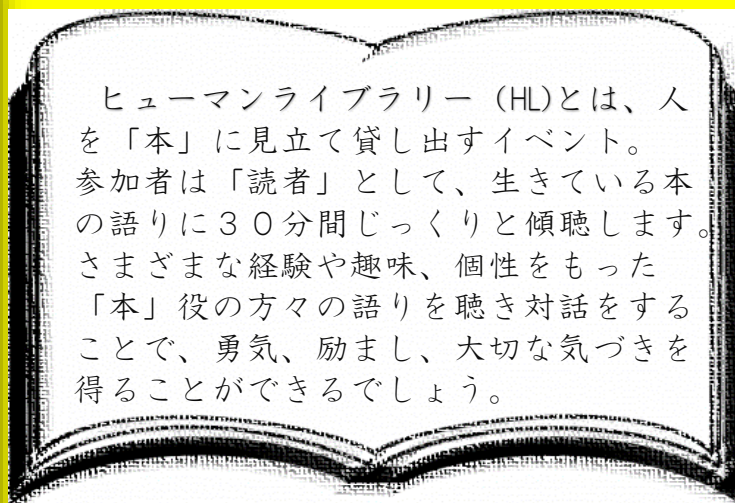 ヒューマンライブラリー (HL)とは、人
を「本」に見立て貸し出すイベント。
参加者は「読者」として、生きている本
の語りに３０分間じっくりと傾聴します。
さまざまな経験や趣味、個性をもった
「本」役の方々の語りを聴き対話をする
ことで、勇気、励まし、大切な気づきを
得ることができるでしょう。